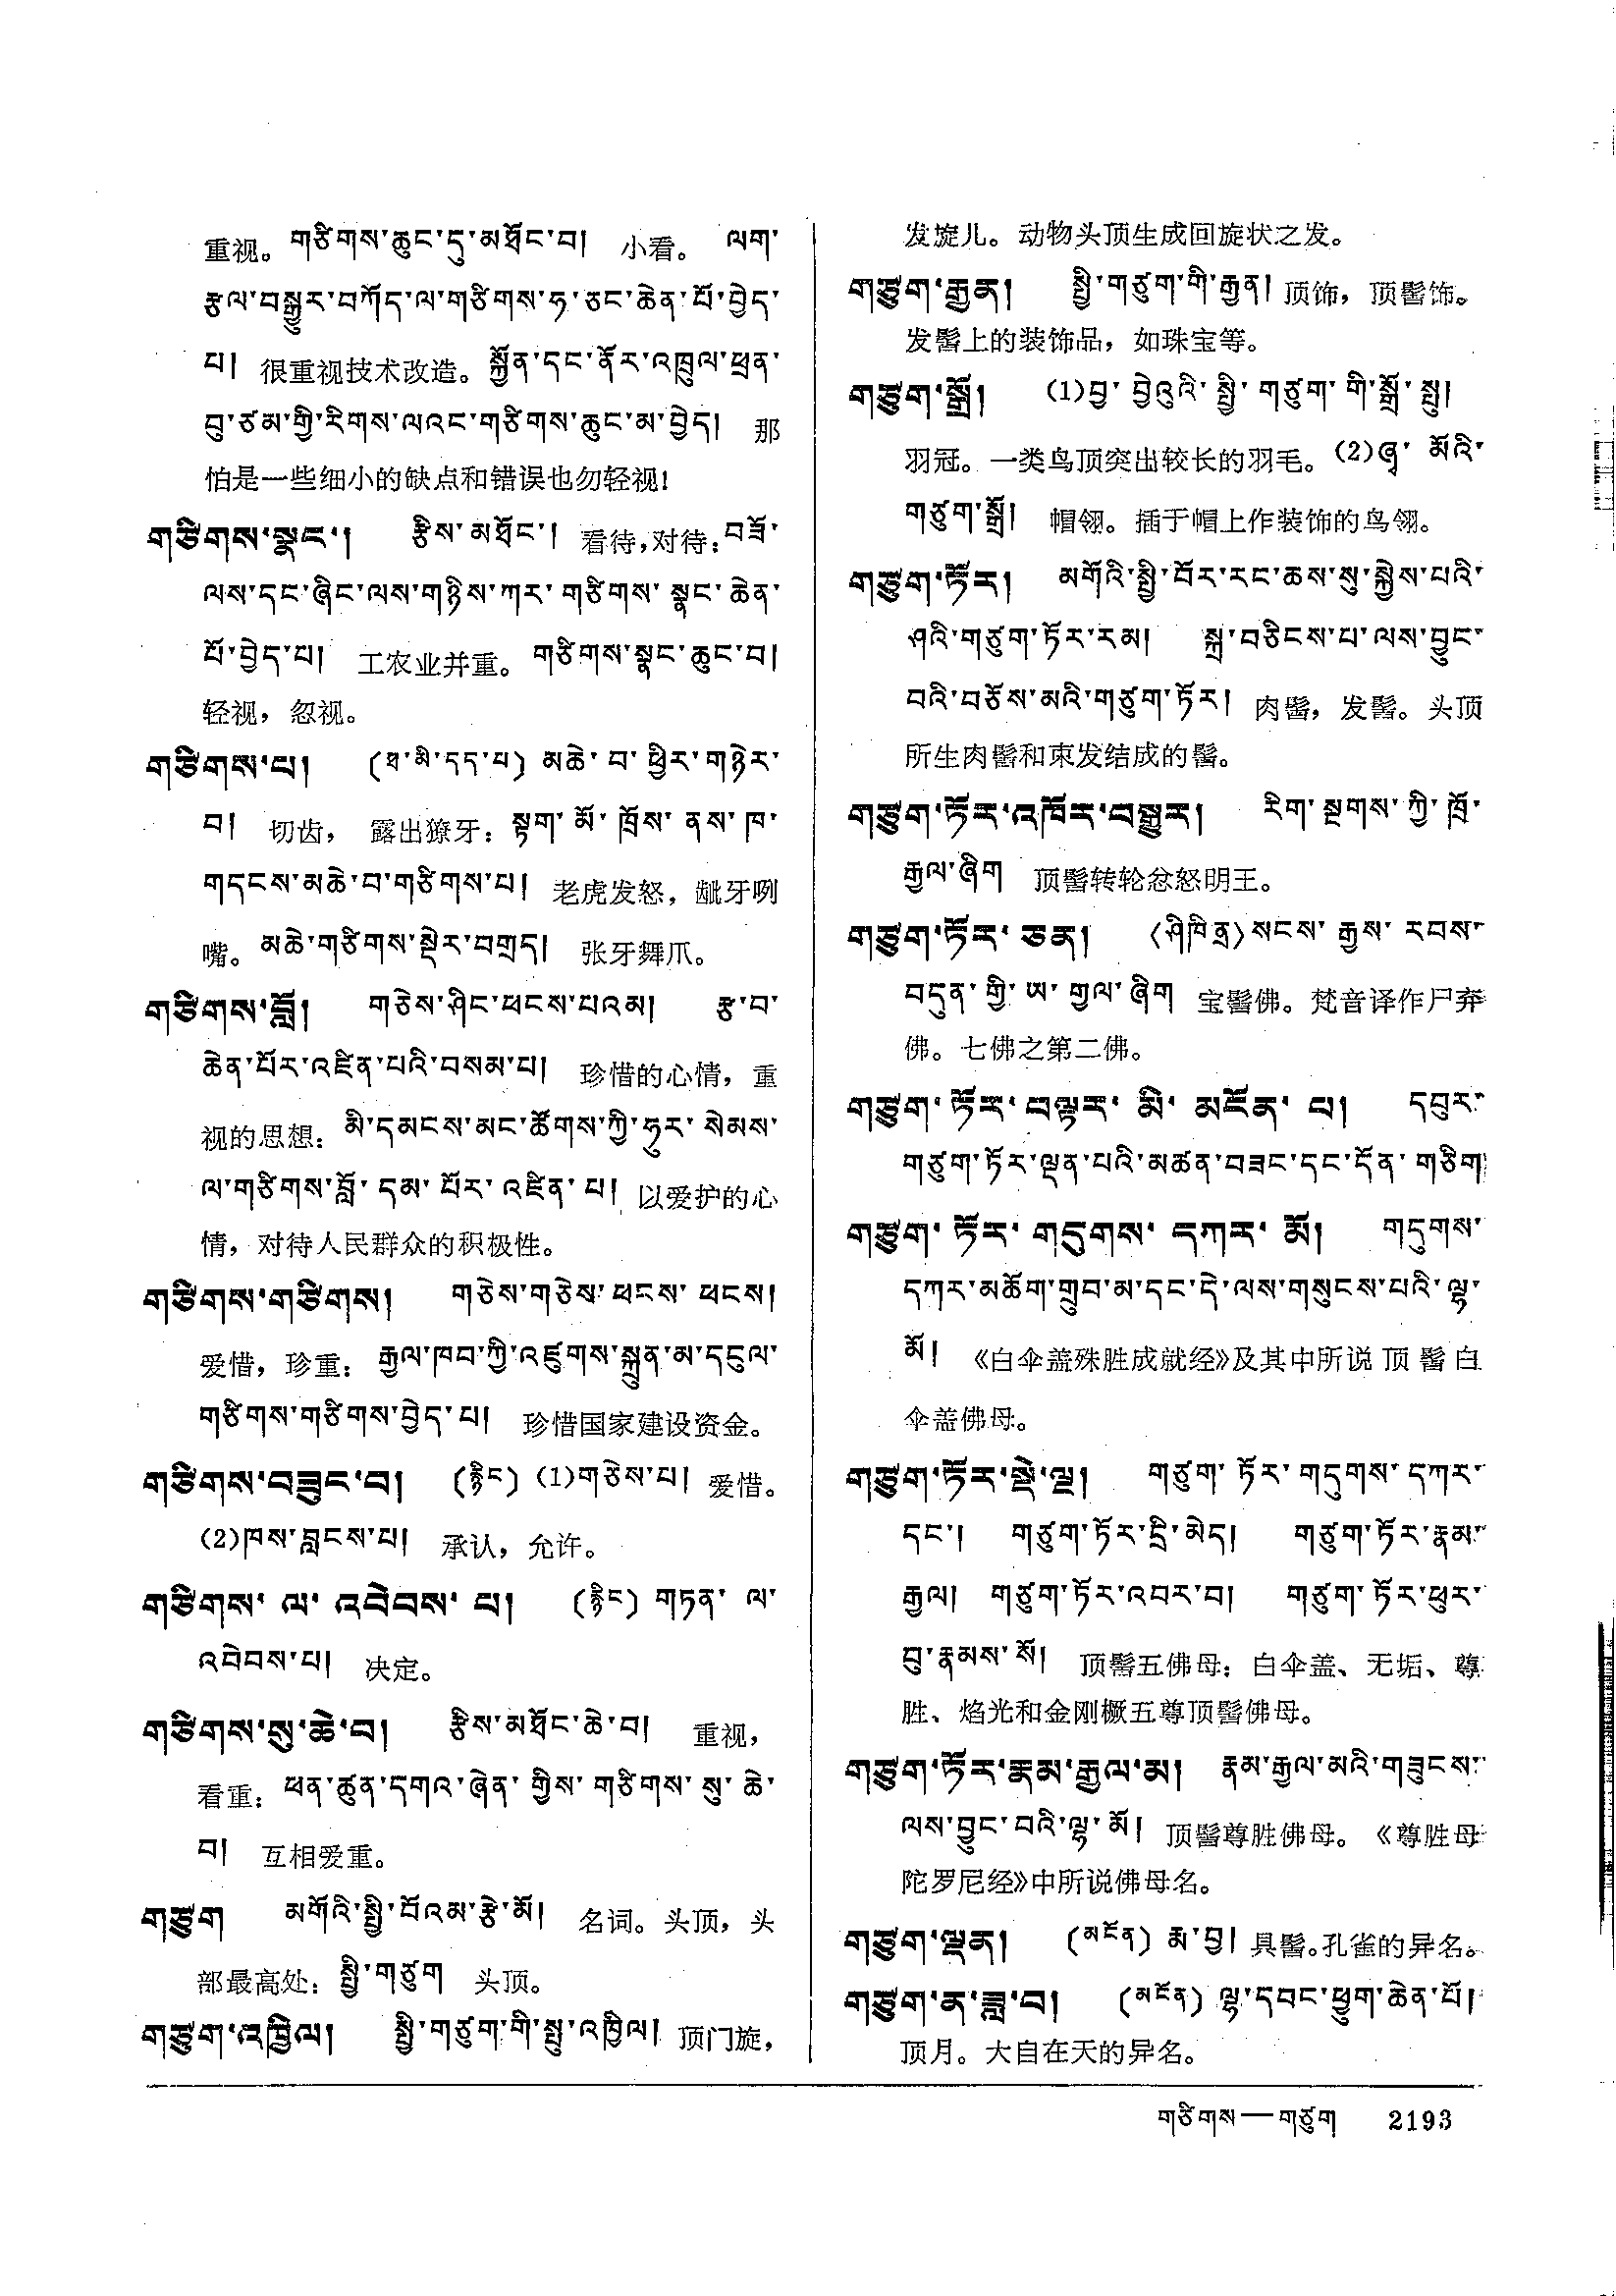 重视。 གཙིགས་ཆུང་དུ་མཐོང་བ། 小看。 ལག་
རྩལ་བསྒྱུར་བཀོད་ལ་གཙིགས་ཧ་ཅང་ཆེན་པོ་བྱེད་
པ། 很重视技术改造。 སྐྱོན་དང་ནོར་འཁྲུལ་ཕྲན་
བུ་ཙམ་གྱི་རིགས་ལའང་གཙིགས་ཆུང་མ་བྱེད། 那
怕是一些细小的缺点和错误也勿轻视!
གཙིགས་སྣང་། རྩིས་མཐོང་། 看待,对待: བཟོ་
ལས་དང་ཞིང་ལས་གཉིས་ཀར་གཙིགས་སྣང་ཆེན་
པོ་བྱེད་པ། 工农业并重。 གཙིགས་སྣང་ཆུང་བ།
轻视，忽视。
གཙིགས་པ། (ཐ་མི་དད་པ) མཆེ་བ་ཕྱིར་གཉེར་
བ། 切齿， 露出獠牙: སྟག་མོ་ཁྲོས་ནས་ཁ་
གདངས་མཆེ་བ་གཙིགས་པ། 老虎发怒，龇牙咧
嘴。 མཆེ་གཙིགས་སྡེར་བགྲད། 张牙舞爪。
གཙིགས་བློ། གཅེས་ཤིང་ཕངས་པའམ། རྩ་བ་
ཆེན་པོར་འཛིན་པའི་བསམ་པ། 珍惜的心情，重
视的思想: མི་དམངས་མང་ཚོགས་ཀྱི་ཧུར་སེམས་
ལ་གཙིགས་བློ་དམ་པོར་འཛིན་པ། 以爱护的心
情，对待人民群众的积极性。
གཙིགས་གཙིགས། གཅེས་གཅེས་ཕངས་ཕངས།
爱惜，珍重: རྒྱལ་ཁབ་ཀྱི་འཛུགས་སྐྲུན་མ་དངུལ་
གཙིགས་གཙིགས་བྱེད་པ། 珍惜国家建设资金。
གཙིགས་བཟུང་བ། (རྙིང) (1)གཅེས་པ། 爱惜。
(2)ཁས་བླངས་པ། 承认，允许。
གཙིགས་ལ་འབེབས་པ། (རྙིང) གཏན་ལ་
འབེབས་པ། 决定。
གཙིགས་སུ་ཆེ་བ། རྩིས་མཐོང་ཆེ་བ། 重视，
看重: ཕན་ཚུན་དགའ་ཞེན་གྱིས་གཙིགས་སུ་ཆེ་
བ། 互相爱重。
གཙུག མགོའི་སྤྱི་བོའམ་རྩེ་མོ། 名词。头顶，头
部最高处: སྤྱི་གཙུག 头顶。
གཙུག་འཁྱིལ། སྤྱི་གཙུག་གི་སྤུ་འཁྱིལ། 顶门旋，
发旋儿。动物头顶生成回旋状之发。
གཙུག་རྒྱན། སྤྱི་གཙུག་གི་རྒྱན། 顶饰，顶髻饰。
发髻上的装饰品，如珠宝等。
གཙུག་སྒྲོ། (1)བྱ་བྱེའུའི་སྤྱི་གཙུག་གི་སྒྲོ་སྤུ།
羽冠。一类鸟顶突出较长的羽毛。(2)ཞྭ་མོའི་
གཙུག་སྒྲོ། 帽翎。插于帽上作装饰的鸟翎。
གཙུག་ཏོར། མགོའི་སྤྱི་བོར་རང་ཆས་སུ་སྐྱེས་པའི་
ཤའི་གཙུག་ཏོར་རམ། སྐྲ་བཅིངས་པ་ལས་བྱུང་
བའི་བཅོས་མའི་གཙུག་ཏོར། 肉髻，发髻。头顶
所生肉髻和束发结成的髻。
གཙུག་ཏོར་འཁོར་བསྒྱུར། རིག་སྔགས་ཀྱི་ཁྲོ་
རྒྱལ་ཞིག 顶髻转轮忿怒明王。
གཙུག་ཏོར་ཅན། (ཤིཁིན྄) སངས་རྒྱས་རབས་
བདུན་གྱི་ཨ་གྱལ་ཞིག 宝髻佛。梵音译作尸弃
佛。七佛之第二佛。
གཙུག་ཏོར་བལྟར་མི་མངོན་པ། དབུར་
གཙུག་ཏོར་ལྡན་པའི་མཚན་བཟང་དང་དོན་གཅིག
གཙུག་ཏོར་གདུགས་དཀར་མོ། གདུགས་
དཀར་མཆོག་གྲུབ་མ་དང་དེ་ལས་གསུངས་པའི་ལྷ་
མོ། 《白伞盖殊胜成就经》及其中所说顶髻白
伞盖佛母。
གཙུག་ཏོར་སྡེ་ལྔ། གཙུག་ཏོར་གདུགས་དཀར་
དང་། གཙུག་ཏོར་དྲི་མེད། གཙུག་ཏོར་རྣམ་
རྒྱལ། གཙུག་ཏོར་འབར་བ། གཙུག་ཏོར་ཕུར་
བུ་རྣམས་སོ། 顶髻五佛母: 白伞盖、无垢、尊
胜、焰光和金刚橛五尊顶髻佛母。
གཙུག་ཏོར་རྣམ་རྒྱལ་མ། རྣམ་རྒྱལ་མའི་གཟུངས་
ལས་བྱུང་བའི་ལྷ་མོ། 顶髻尊胜佛母。《尊胜母
陀罗尼经》中所说佛母名。
གཙུག་ལྡན། (མངོན) རྨ་བྱ། 具髻。孔雀的异名。
གཙུག་ན་ཟླ་བ། (མངོན) ལྷ་དབང་ཕྱུག་ཆེན་པོ།
顶月。大自在天的异名。
གཙིགས—གཙུག 2193